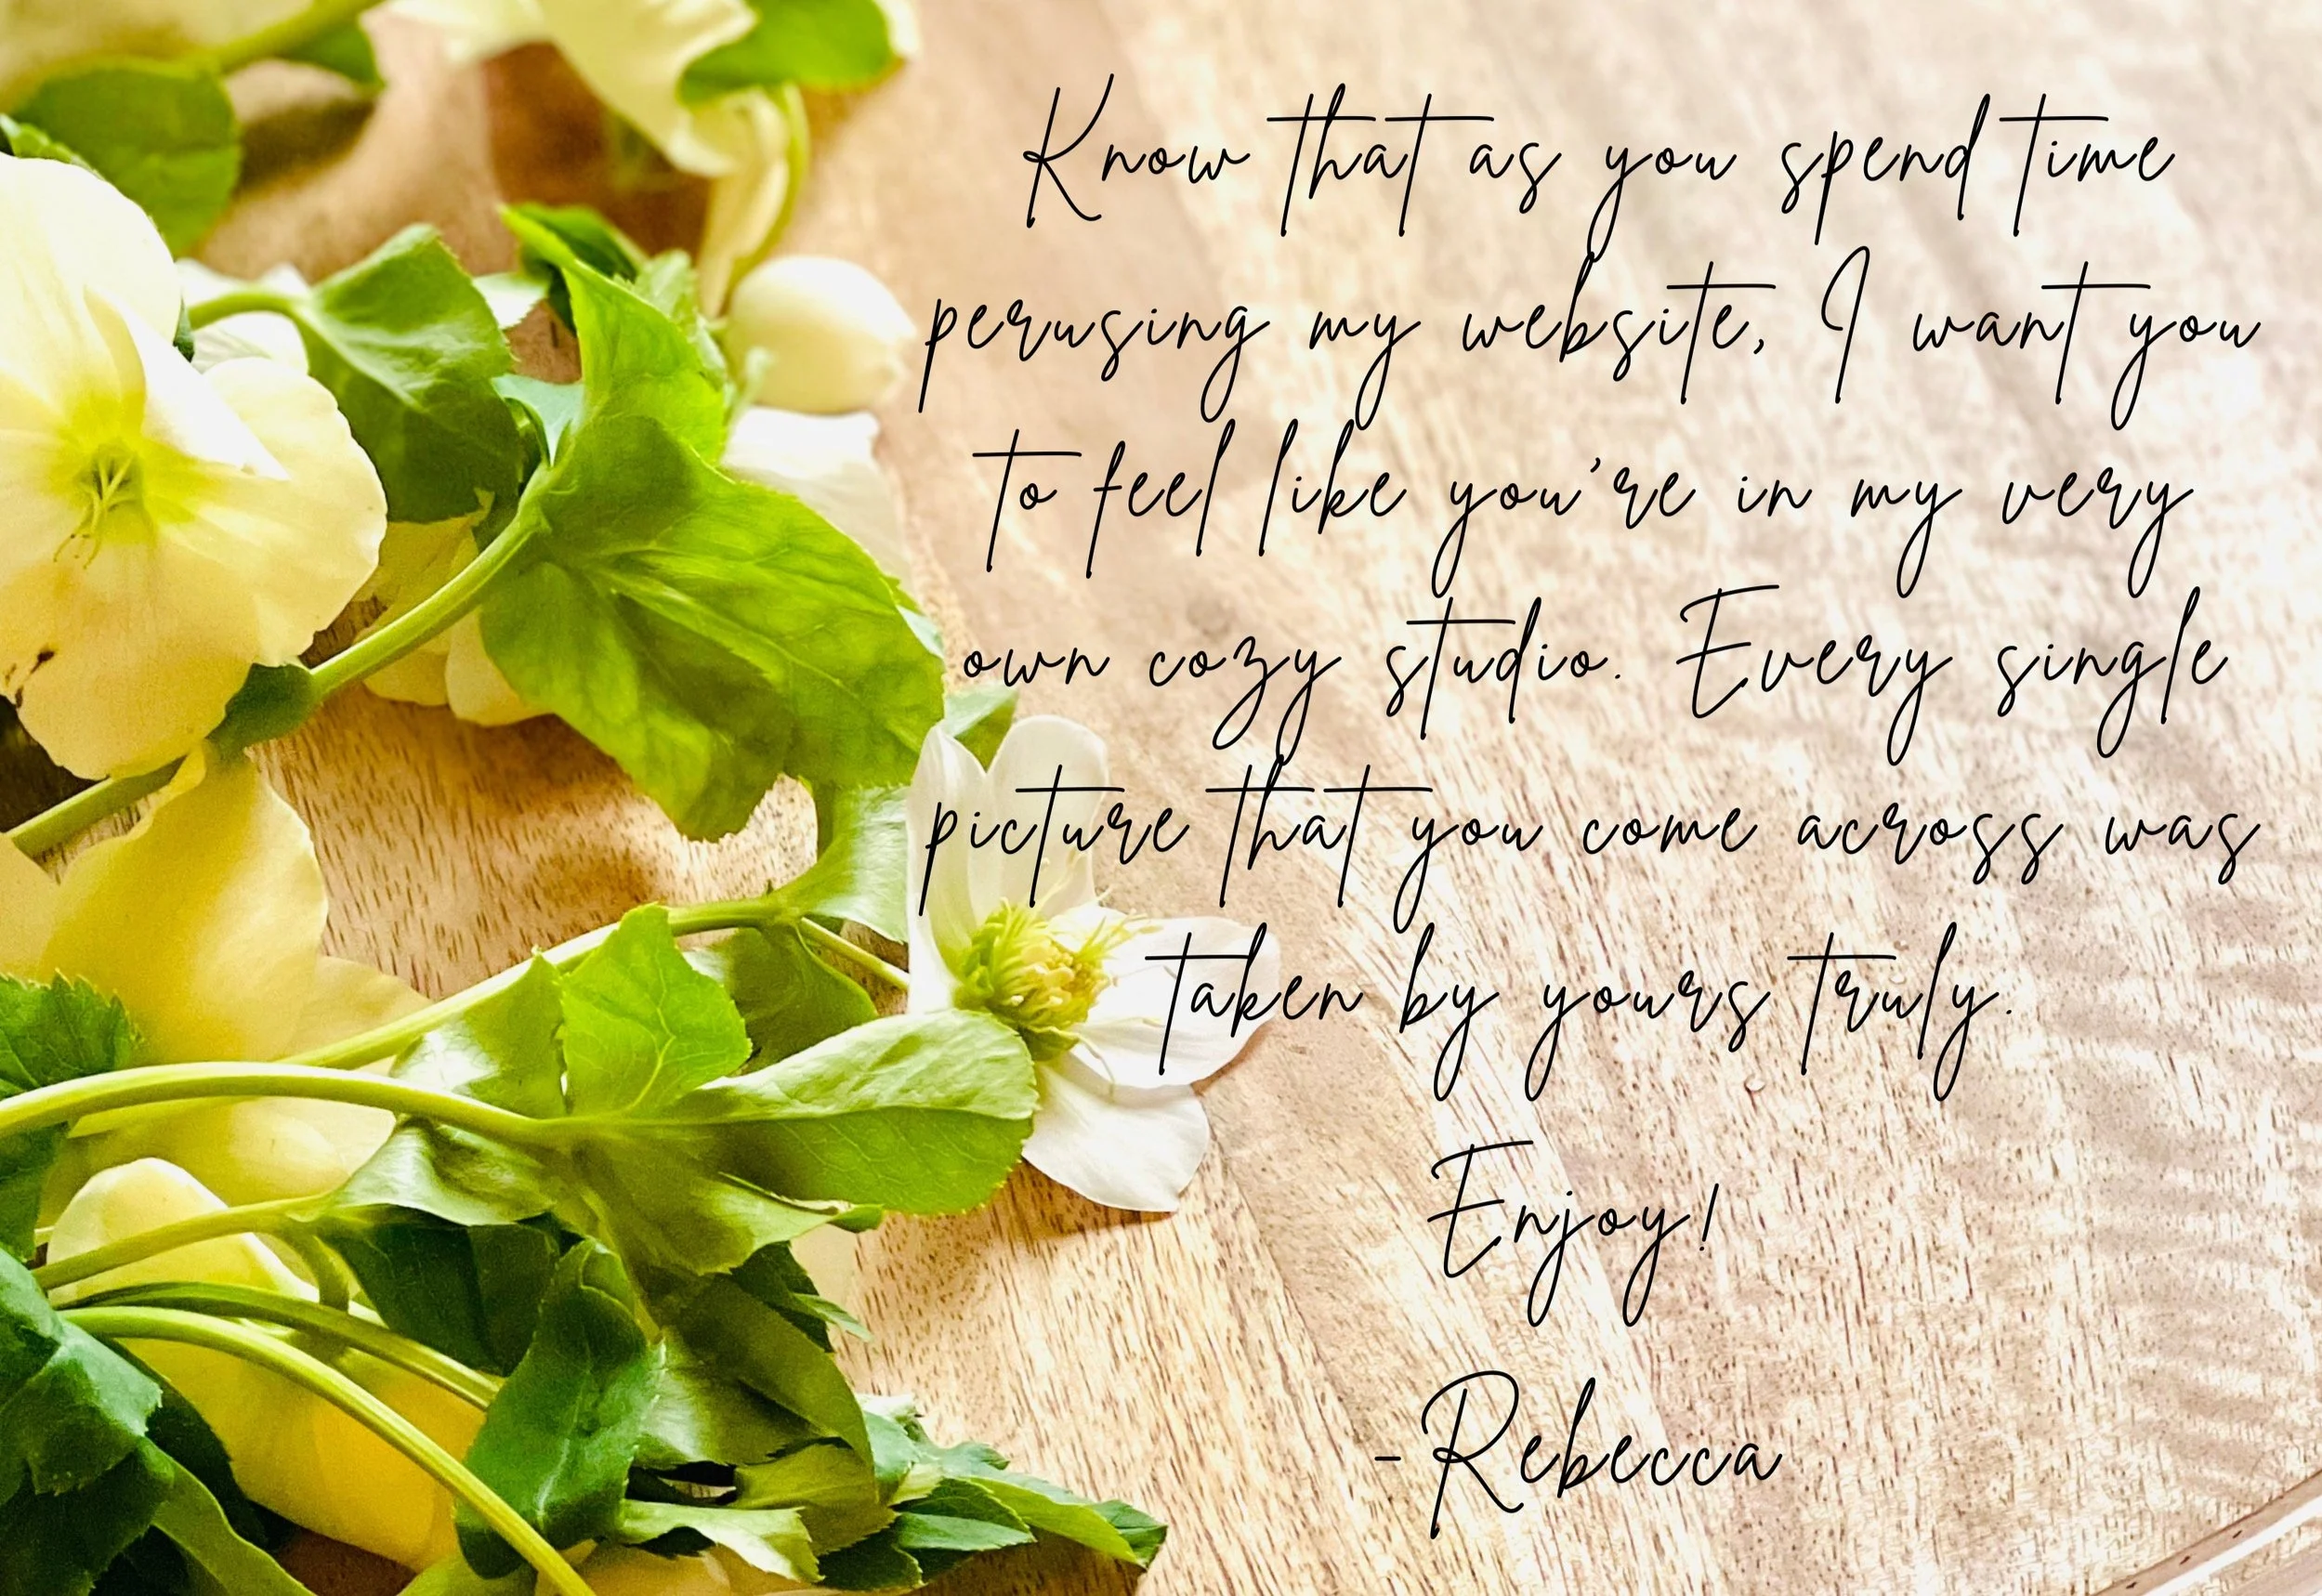 Know that as you spend time
perusing my website, I want you
to feel like you're in my very
own cozy studio. Every single
picture that you come across was
taken by yours truly.
Enjoy!
-Rebecca